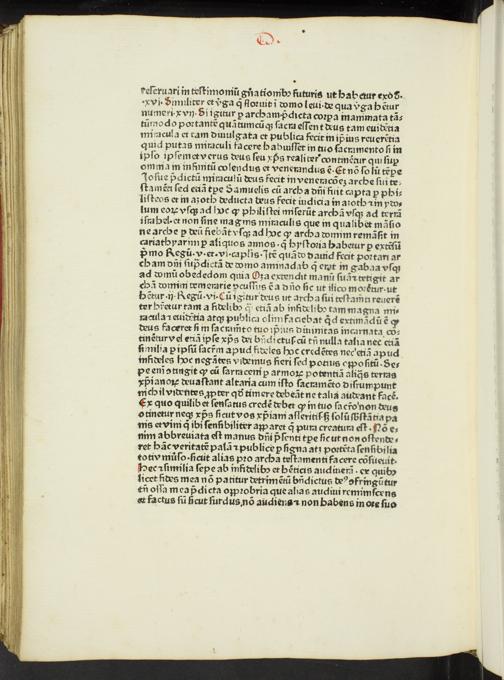 reseruari in testimoniũ gñationibꝰ futuris ut habetur exoð.
.xvi. Similiter et ꝟga q̃ floruit ĩ domo leui. de qua ꝟga hētur
numeri.xvii. Si igitur ꝑ archam ꝓdicta corꝑa mammata tã
tũmodo portantē quãtumcũqꝫ sacra essent deus tam euidētia
miracula et tam diuulgata et publica fecit in ipius reuerētia
quid putas miracula facere habuisset in tuo sacramento si in
ipso ipsemet verus deus seu xp̃s realiter continetur qui sup̱
omnia in infinitũ colendus et venerandus ē. Et nō solũ tēpe
Iosue p̃dicti miraculũ deus fecit in veneracōeꝫ arche sui te-
stamēti sed etiã tp̃e Samuelis cũ archa dñi fuit capta ꝑ phi
listeos et in azoth deducta deus fecit iudicia in azoth in ydo
lum eoꝝ vsqꝫ ad hoc ꝙ philistei miserũt archã vsqꝫ ad terrã
israhel. et non sine magnis miraculis que in qualibet mãsio
ne arche ꝑ deũ fiebãt vsqꝫ ad hoc ꝙ archa domini remãsit in
cariathyarim ꝑ aliquos annos. q̃ hystoria habetur ꝑ extẽsũ
p̃mo Regũ.v.et.vi.capl̃is. Itē quãdo dauid fecit portari ar
cham dñi sup̃dictã de domo aminadab q̃ erat in gabaa vsqꝫ
ad domũ obededom quia Oza extendit manũ suã et tetigit ar
chã domini temerarie ꝑcussus ē a dño sic ut ilico morētur. ut
hētur.ii.Regũ.vi. Cũ igitur deus ut archa sui testamẽti reuerē
ter hr̃etur tam a fidelibꝰ ꝙ etiã ab infidelibꝰ tam magna mi-
racula ⁊ euidētia atqꝫ publica olim faciebat qd̃ extimãdũ ē ꝙ
deus faceret si in sacramẽto tuo ip̃ius diuinitas incarnata cō-
tinētur vel etiã ipse xp̃s dei bñdictus cũ tñ nulla talia nec etiã
similia ꝑ ipsũ sacr̃m apud fideles hoc credētes nec etiã apud
infideles hoc negãtes videmus fieri sed potius oppositũ. Se-
pe eni ͫ otingit ꝙ cũ sarraceni ꝑ armoꝝ potentiã aliq̃s terras
xp̃ianoꝝ deuastant altaria cum isto sacramēto disrumpunt
nichil videntes ꝓpter qd̃ timere debeãt ne talia audeant facē.
Ex quo quilibet sensatus credē debet ꝙ in tuo sacr̃o non deus
otinetur neqꝫ xp̃s sicut vos xp̃iani asseritis sꝫ solũ sbstãtia pa
nis et vini q̃ ibi sensibiliter apparet q̃ pura creatura est. Nō e-
nim abbreuiata est manus dñi p̃senti tp̃e sicut non ostende-
ret hãc veritatē palã ⁊ publice ꝑ signa atqꝫ portēta sensibilia
eo tiuͦ mõ. sicut alias pro archa testamẽti facere cōsueuit.
Hec ⁊ similia sepe ab infidelibꝰ et hēticis audiuerã. ex quibꝰ
licet fides mea nō patitur detrimētũ bñdictus deꝰ ofringũtur
tñ ossa mea p̃dicta opprobria que alias audiui reminiscens
et factus sũ sicut surdus nō audiens ⁊ non habens in ore suo